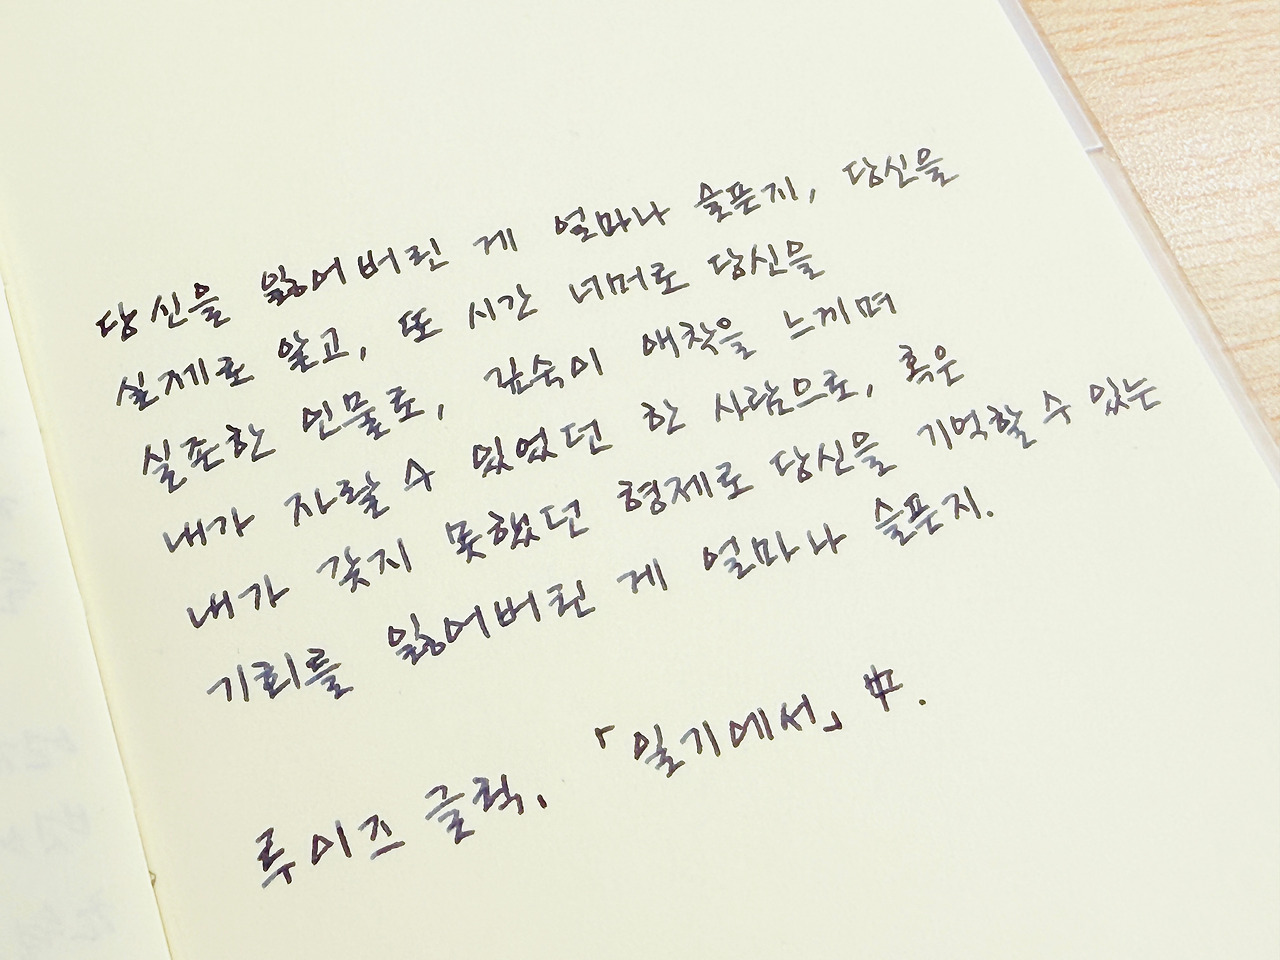 당신을 잃어버린 게 얼마나 슬픈지, 당신을
실제로 알고, 또 시간 너머로 당신을
실존한 인물로, 깊숙이 애착을 느끼며
내가 자랄 수 있었던 한 사람으로, 혹은
내가 갖지 못했던 형제로 당신을 기억할 수 있는
기회를 잃어버린 게 얼마나 슬픈지.
루이즈 글릭, 「일기에서」 中.